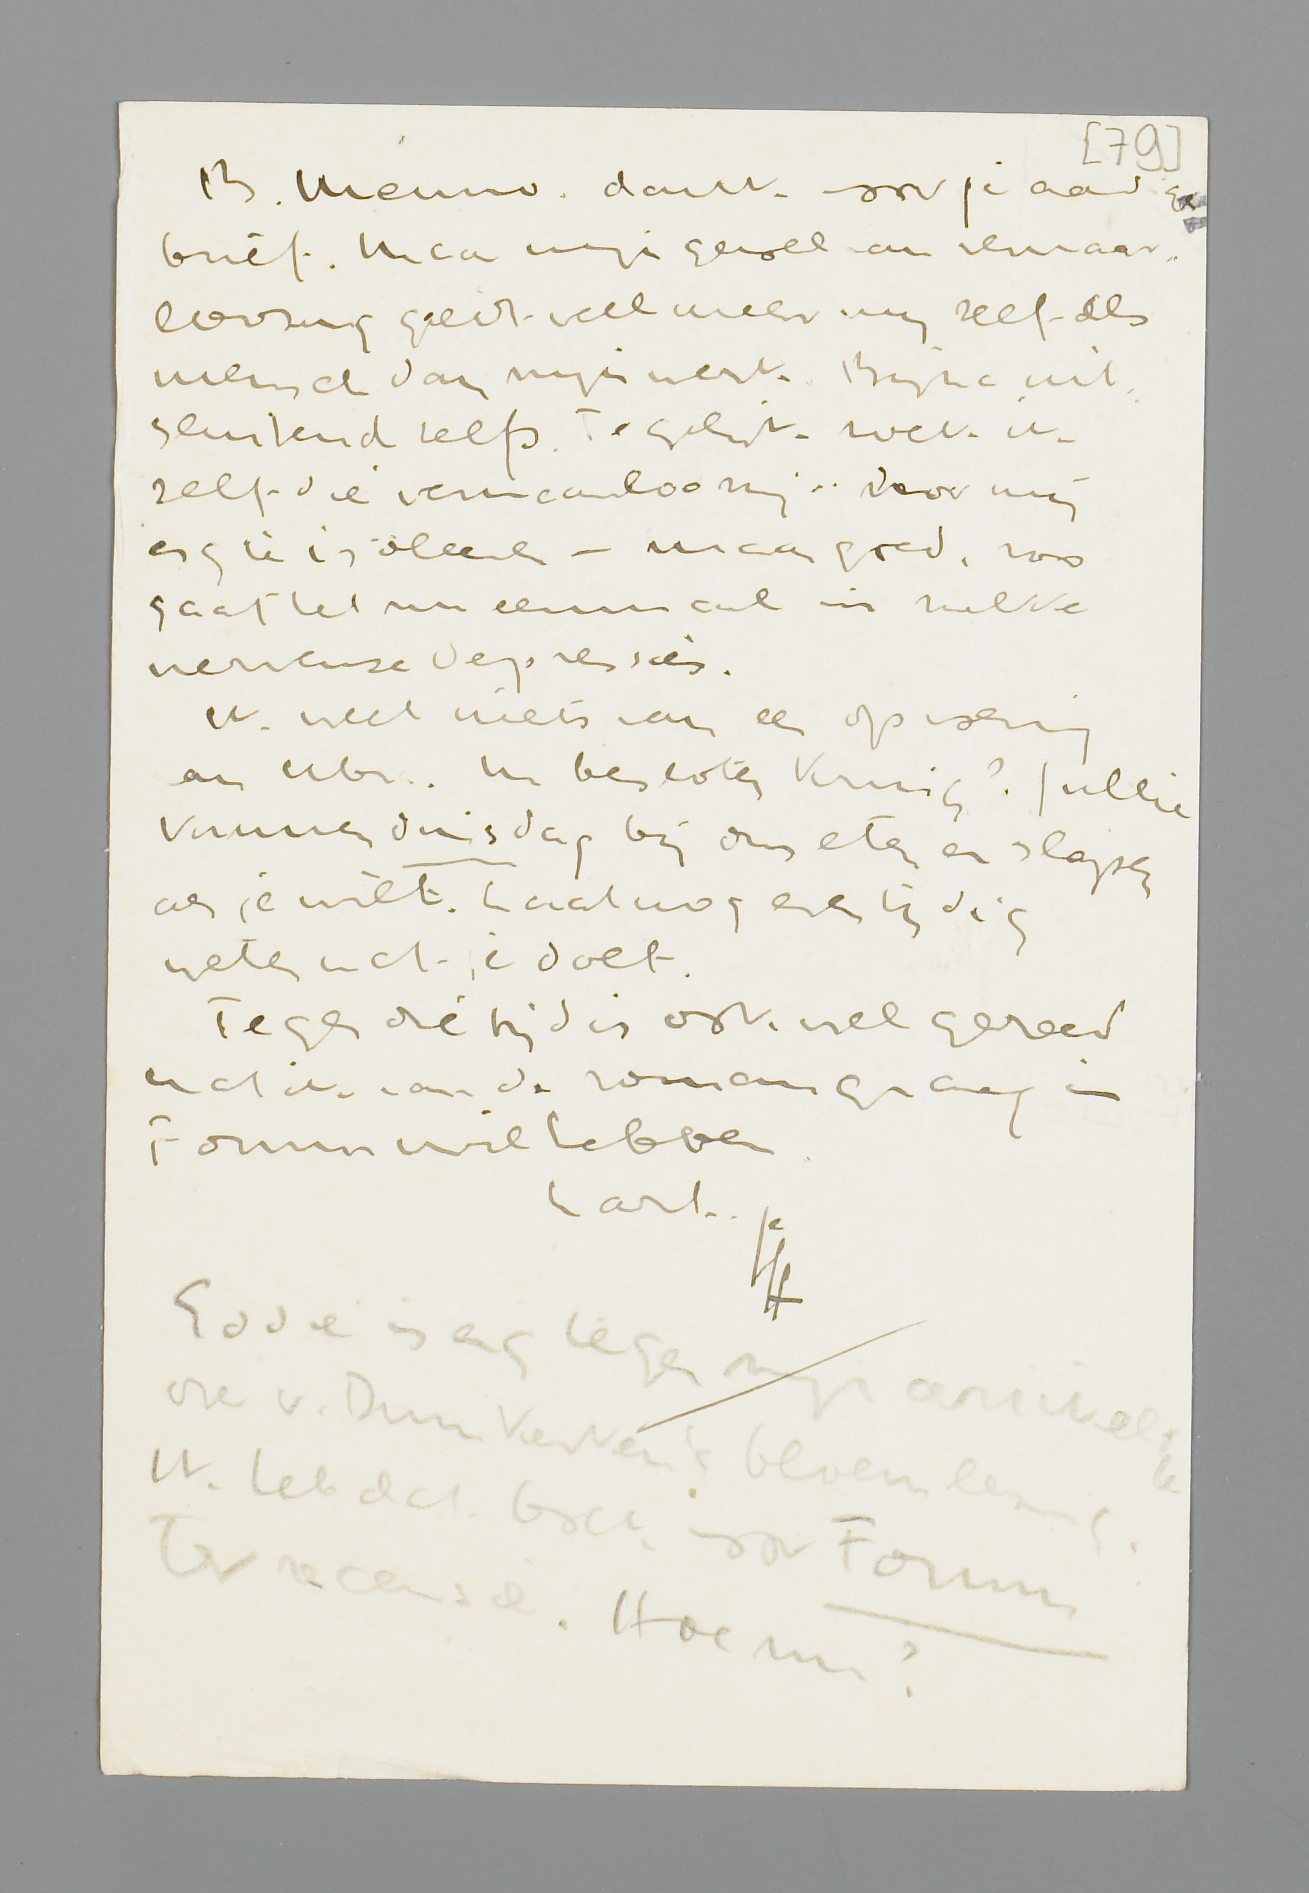 [79]
B. Menno. dank voor je aardige
brief. Maar mijn gevoel van verwaar-
loozing geldt veel meer mij zelf als
mensch dan mijn werk. Bijna uit-
sluitend zelfs. Tegelijk zoek ik
zelf die verwaarloozing door mij
erg te isoleeren — maar goed, zoo
gaat het nu eenmaal in zulke
nerveuze depressies.
Ik weet niets van een opvoering
in besloten kring? Jullie
kunnen dinsdag bij ons eten en slapen
als je wilt. Laat nog even tijdig
weten wat je doet.
Tegen die tijd is ook wel gereed
wat ik van de roman graag in
Forum wil hebben
hart. je
H
Eddie is erg tegen mijn artikel
v. Duinkerken's bloemlezing.
Ik heb dat boek voor Forum
ter recensie. Hoe nu?